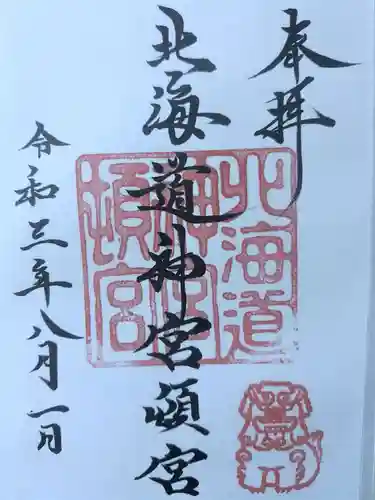 奉拝
北海道神宮頓宮
令和三年八月一日
北海道
神宮
頓宮